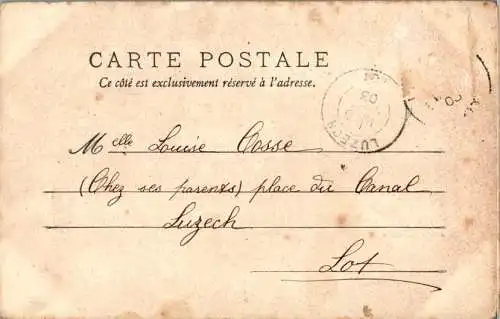 CARTE POSTALE
Ce côté est exclusivement réservé à l'adresse.
LUZECH
03
Melle Louise Cosse
(Chez ses parents) place du Canal
Luzech
Lot